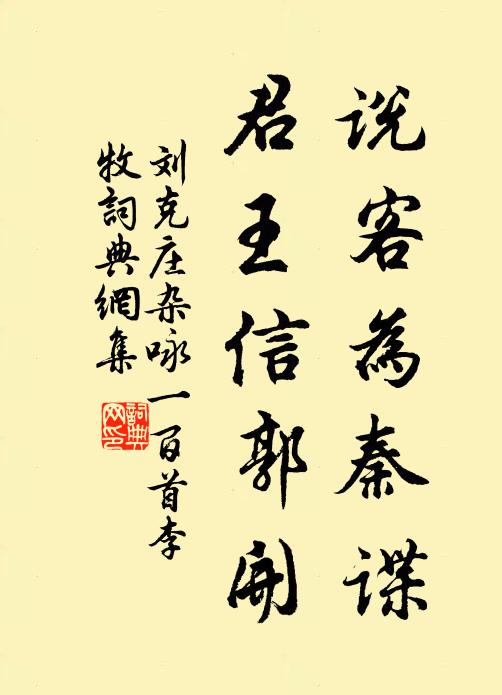 说客為秦谍
君王信郭開
刘克庄杂咏一百首李
牧詞典網集
詞典
网印